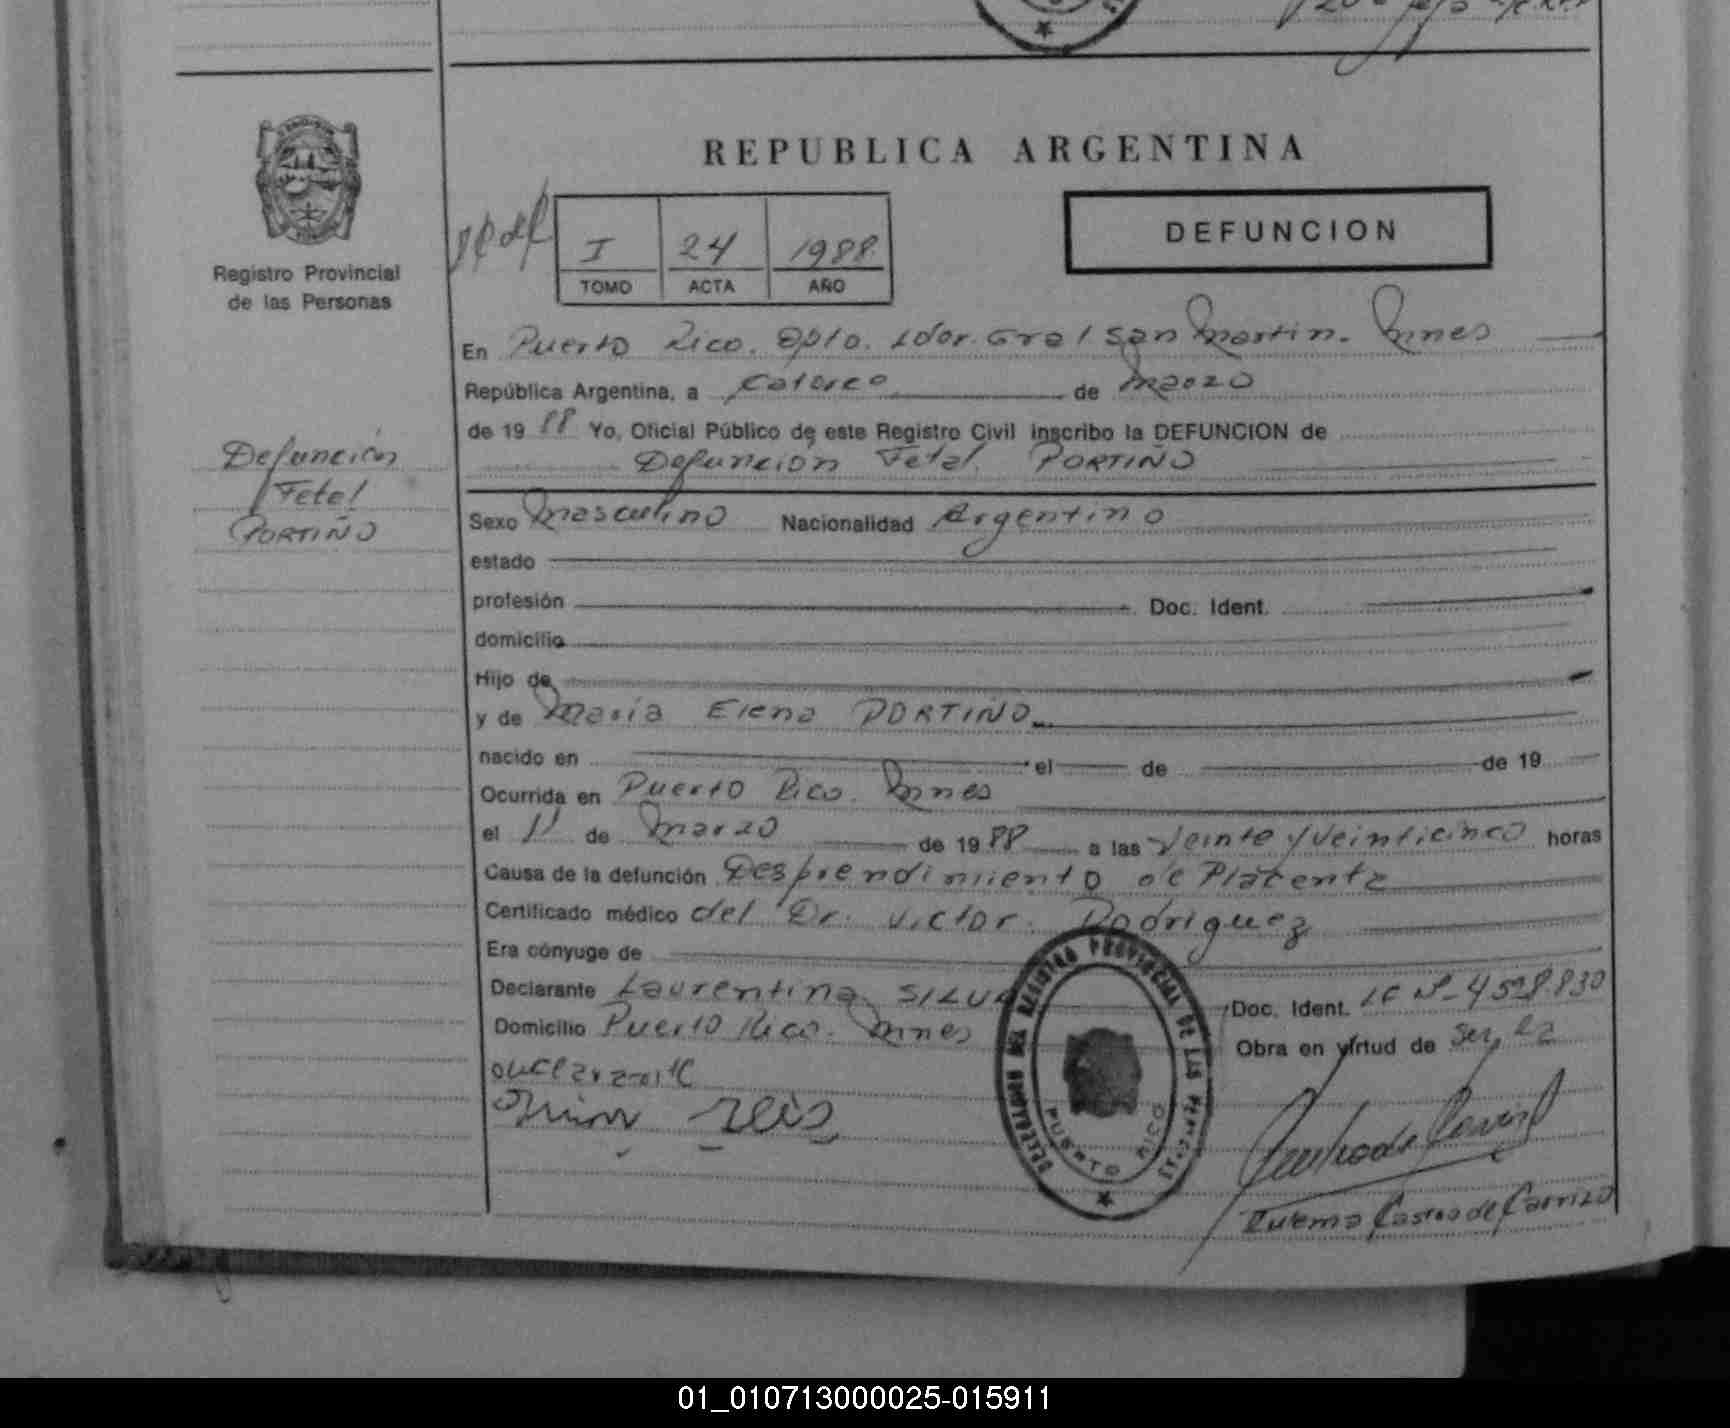 REPUBLICA ARGENTINA
Registro Provincial
de las Personas
I 24 1988
TOMO ACTA AÑO
DEFUNCION
En Puerto Rico. Dpto. Ldor. Gral San Martin. Mnes
República Argentina, a catorce de Marzo
de 19 88 Yo, Oficial Público de este Registro Civil inscribo la DEFUNCION de
Defunción Fetal PORTIÑO
Defunción
Fetal
PORTIÑO
Sexo Masculino Nacionalidad Argentino
estado
profesión Doc. Ident.
domicilio
Hijo de
y de María Elena PORTIÑO
nacido en el de de 19
Ocurrida en Puerto Rico. Mnes
el 11 de Marzo de 19 88 a las Veinte y Veinticinco horas
Causa de la defunción Desprendimiento de Placenta
Certificado médico del Dr. Victor Rodriguez
Era cónyuge de
Declarante Laurentina SILVA Doc. Ident. N°
Domicilio Puerto Rico. Mnes Obra en virtud de Ser la
declarante
DELEGACION DEL REGISTRO PROVINCIAL DE LAS PERSONAS
PUERTO RICO
Castro de Carrizo
01_010713000025-015911